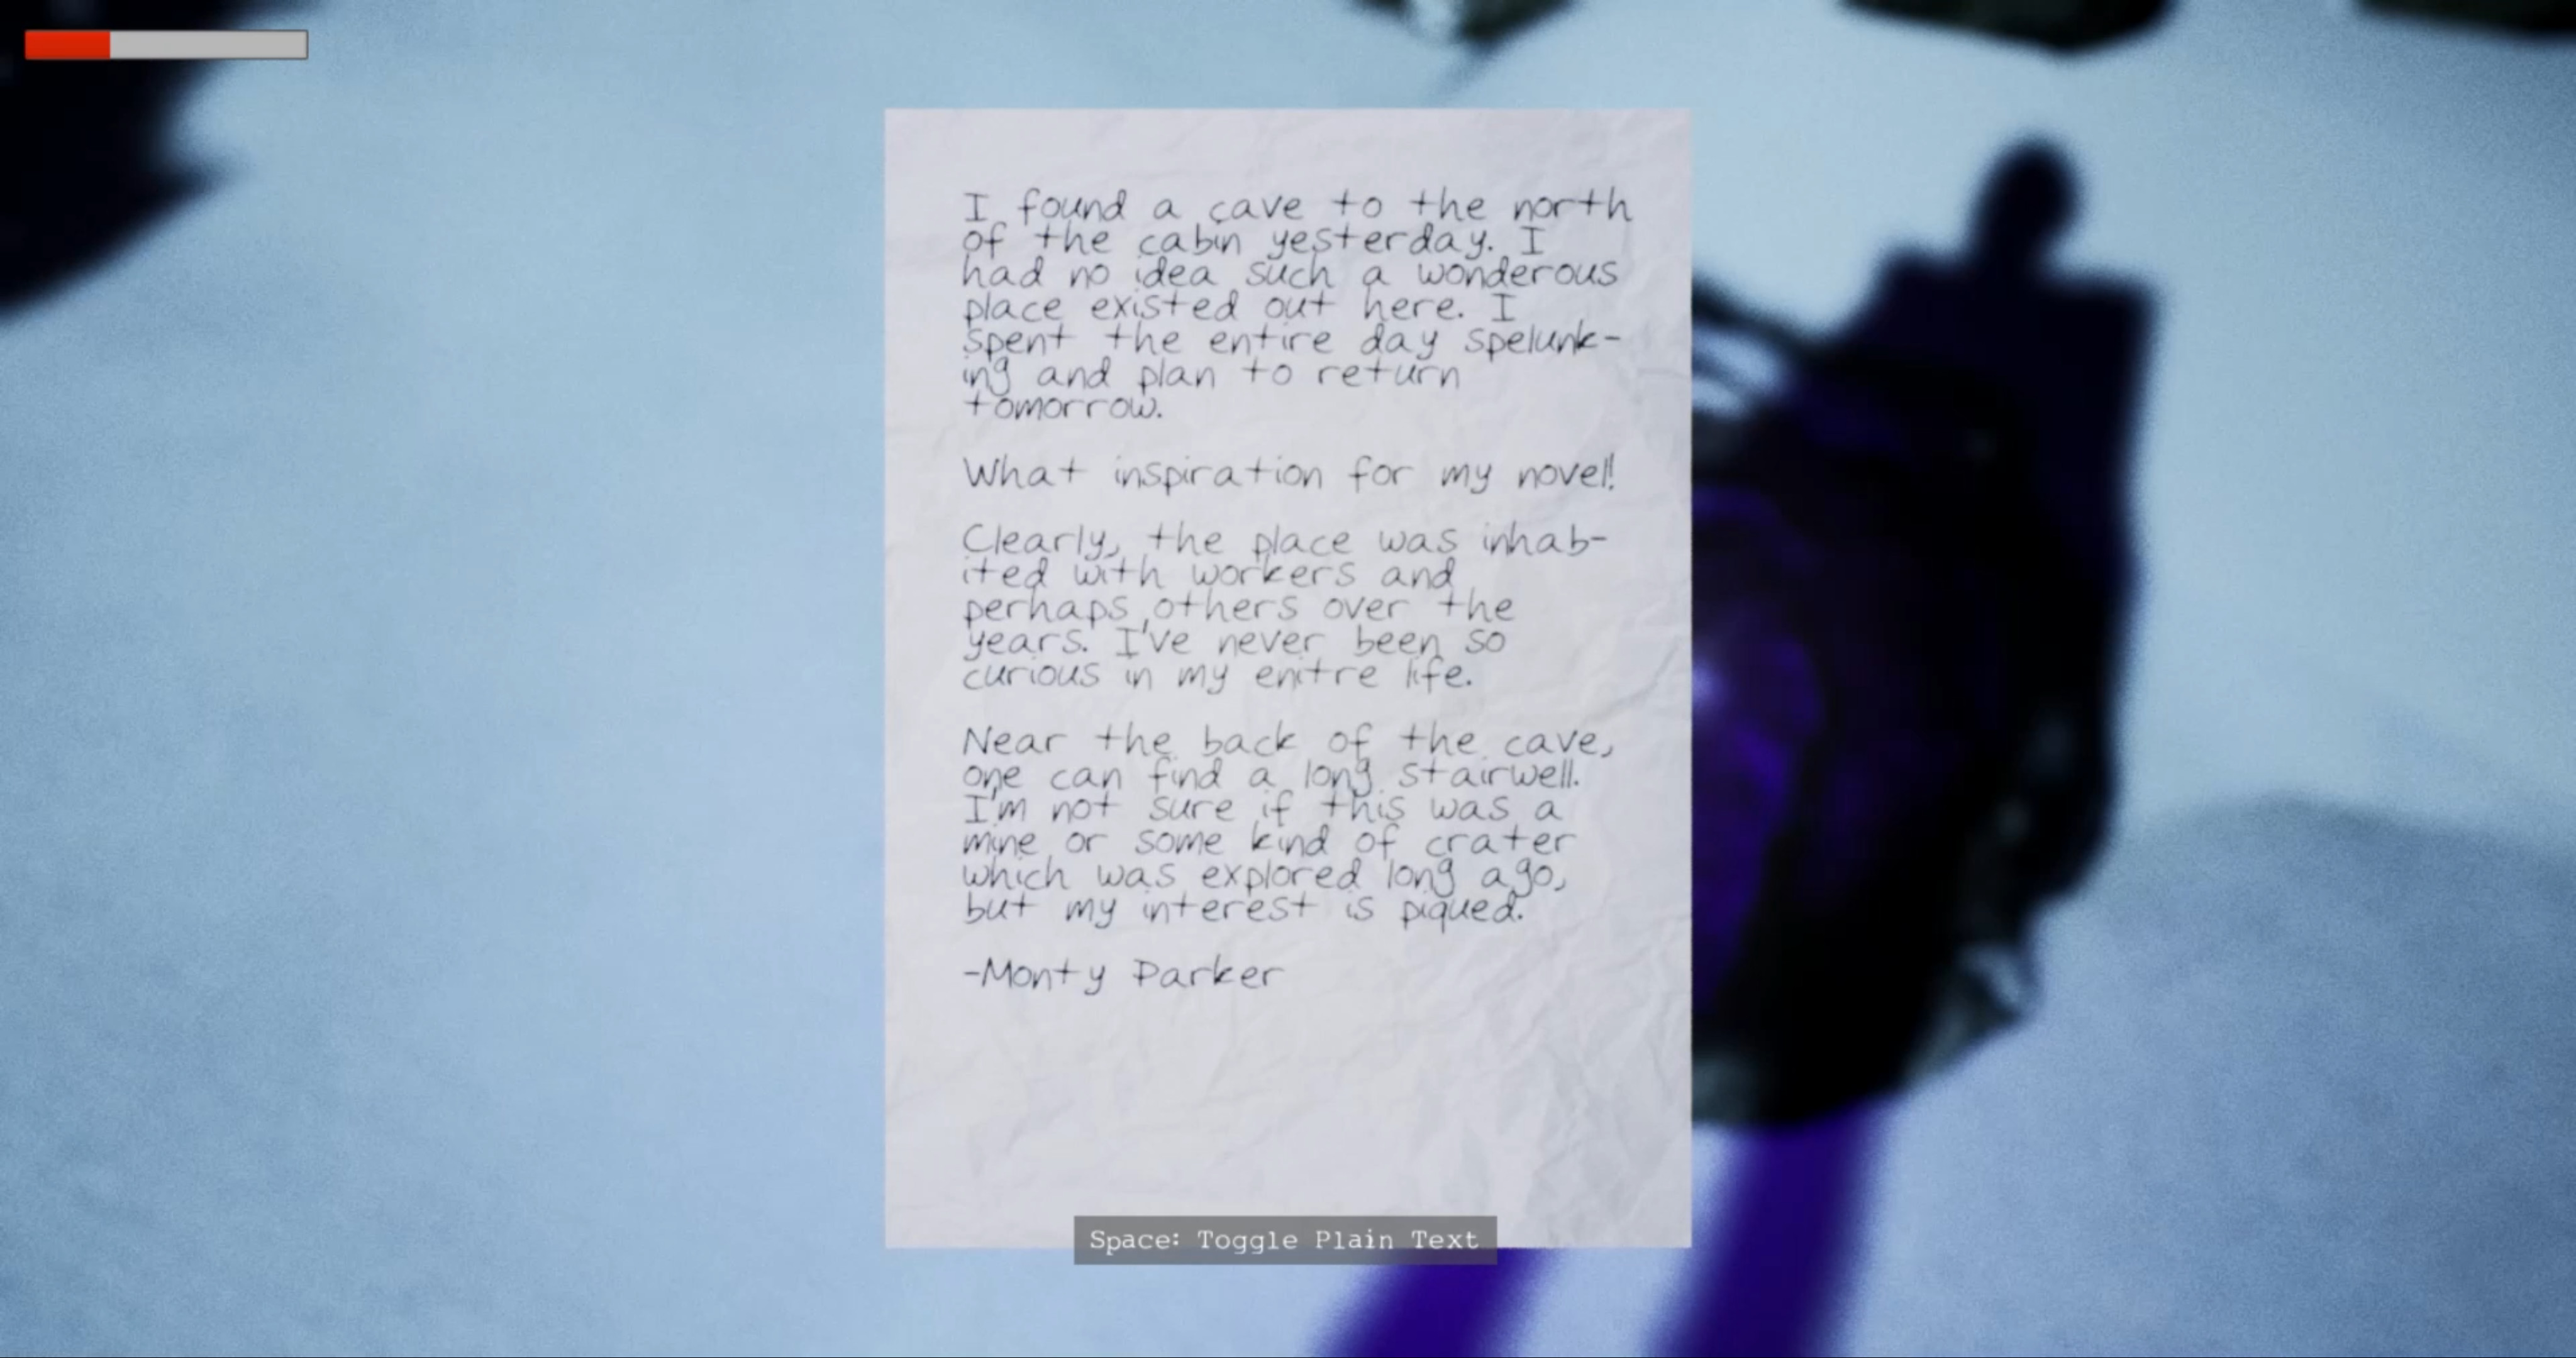 I found a cave to the north
of the cabin yesterday. I
had no idea such a wonderous
place existed out here. I
spent the entire day spelunk-
ing and plan to return
tomorrow.
What inspiration for my novel!
Clearly, the place was inhab-
ited with workers and
perhaps others over the
years. I've never been so
curious in my enitre life.
Near the back of the cave,
one can find a long stairwell.
I'm not sure if this was a
mine or some kind of crater
which was explored long ago,
but my interest is piqued.
-Monty Parker
Space: Toggle Plain Text